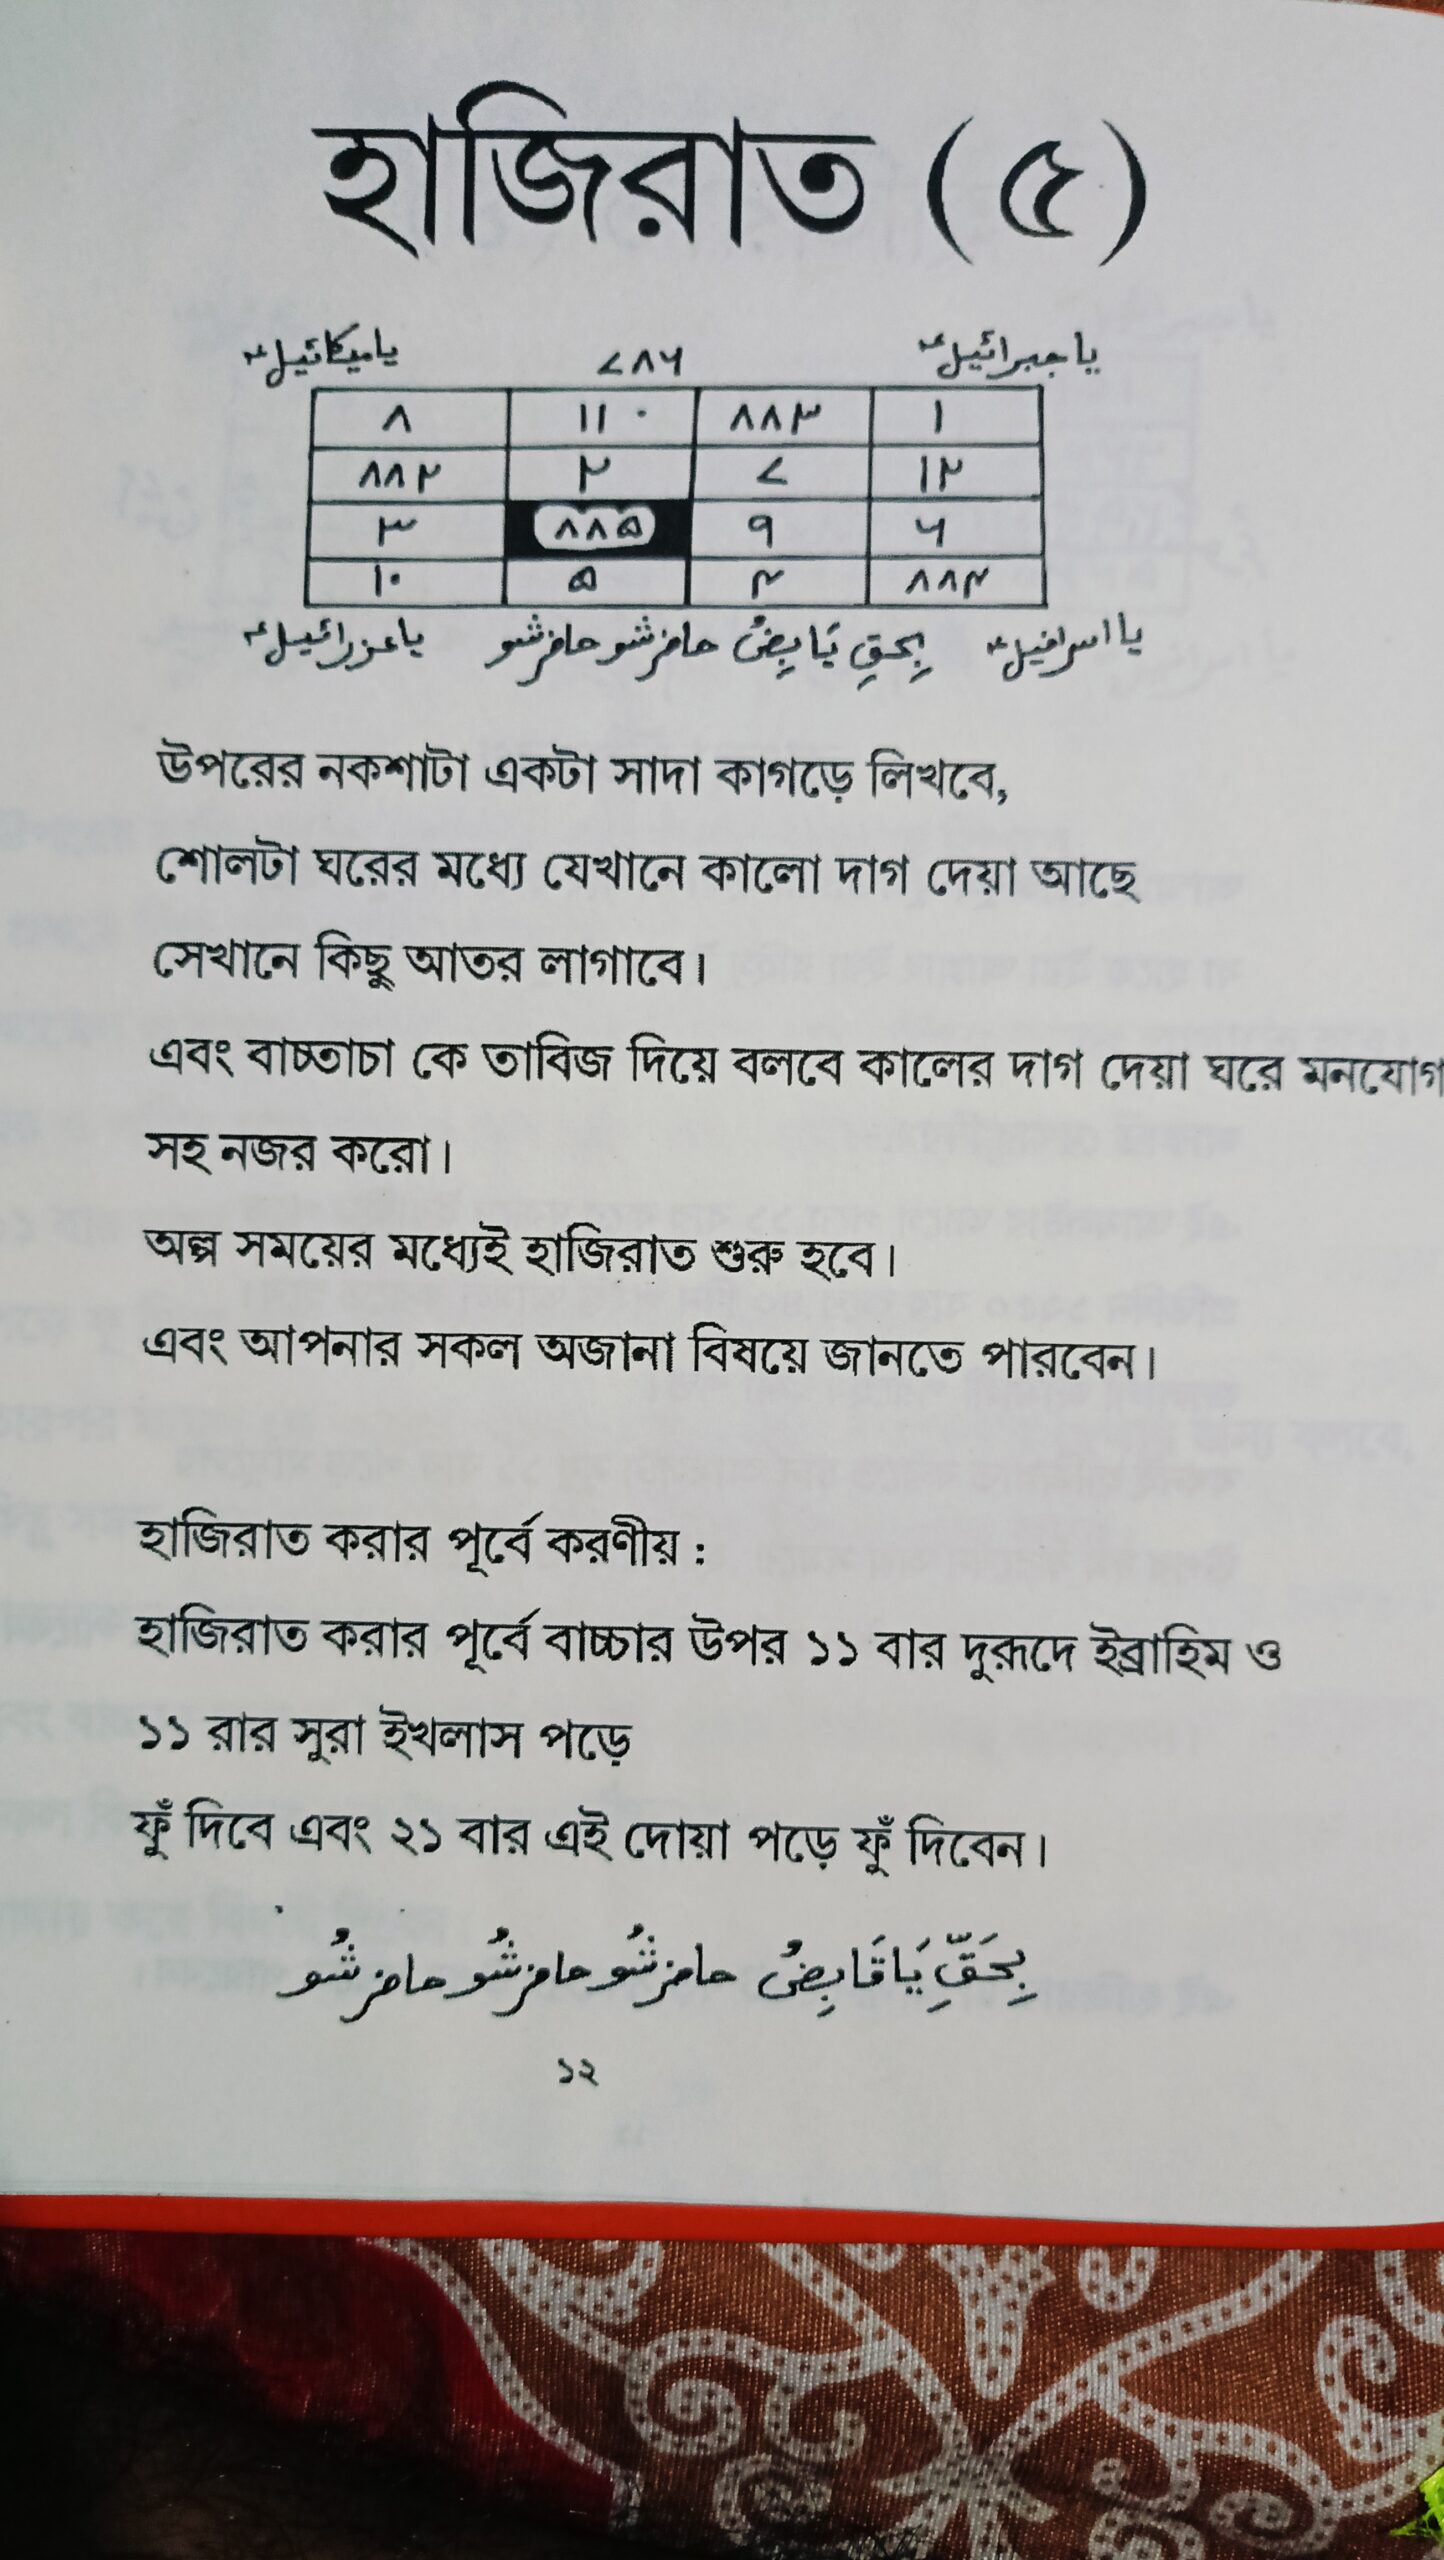 হাজিরাত (৫)
یا جبرائیل ۷۸۶ یا میکائیل
۸ ۱۱ ۸۸۳ ۱
۸۸۲ ۲ ۷ ۱۲
۳ ۸۸۵ ۹ ۶
۱۰ ۵ ۴ ۸۸۴
یا اسرافیل بِحقِ یَا بِضُ حاضر شو حاضر شو یا عزرائیل
উপরের নকশাটা একটা সাদা কাগড়ে লিখবে,
শোলটা ঘরের মধ্যে যেখানে কালো দাগ দেয়া আছে
সেখানে কিছু আতর লাগাবে।
এবং বাচ্তাচা কে তাবিজ দিয়ে বলবে কালের দাগ দেয়া ঘরে মনযোগ
সহ নজর করো।
অল্প সময়ের মধ্যেই হাজিরাত শুরু হবে।
এবং আপনার সকল অজানা বিষয়ে জানতে পারবেন।
হাজিরাত করার পূর্বে করণীয় :
হাজিরাত করার পূর্বে বাচ্চার উপর ১১ বার দুরূদে ইব্রাহিম ও
১১ রার সুরা ইখলাস পড়ে
ফুঁ দিবে এবং ২১ বার এই দোয়া পড়ে ফুঁ দিবেন।
بِحَقِّ يَا قَابِضُ حاضر شُو حاضر شُو حاضر شُو
১২